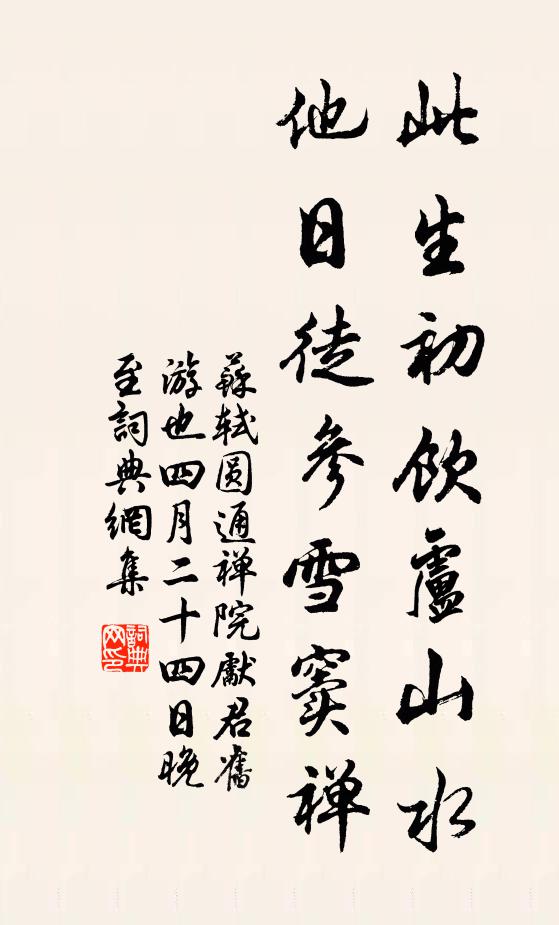 此生初飲廬山水
他日徒參雪竇禅
蘇轼圆通禅院獻君舊
游也四月二十四日晚
至詞典網集
詞典网印